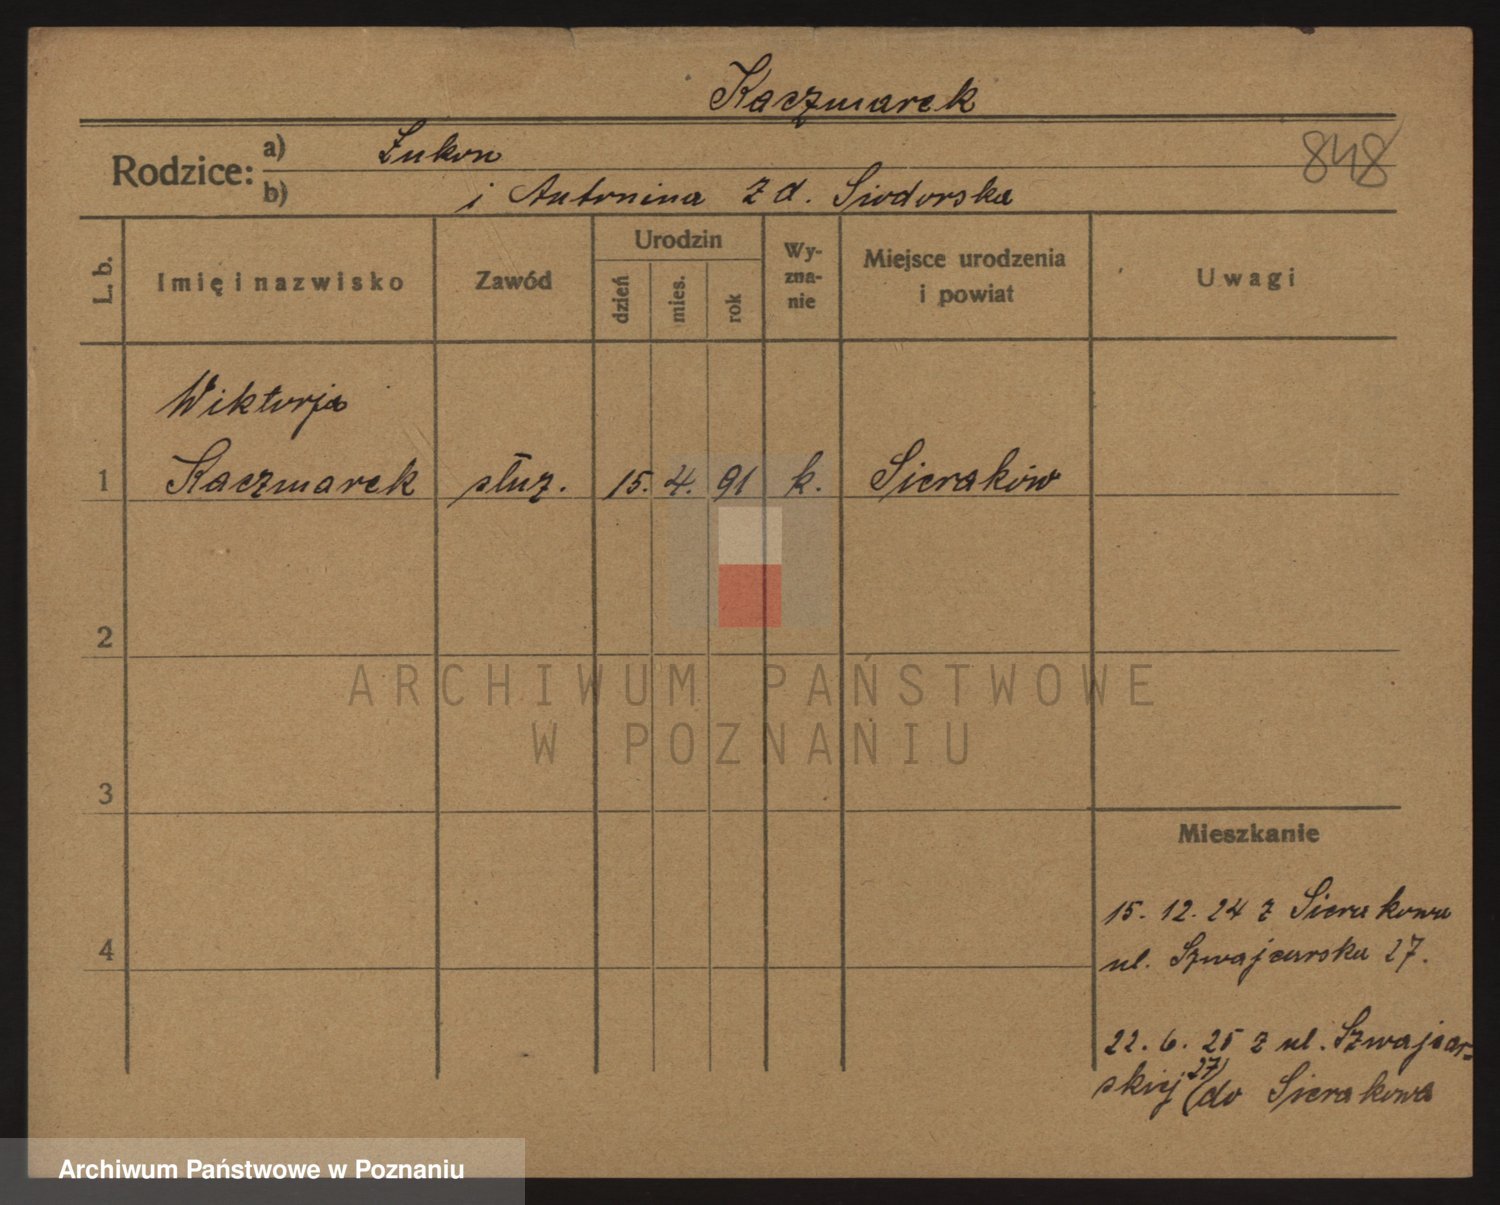 Kaczmarek
Rodzice: a) Łukon
848
b) i Antonina z d. Siodorska
L. b. Imię i nazwisko Zawód Urodzin dzień mies. rok Wyznanie Miejsce urodzenia i powiat Uwagi
Wiktorja
1 Kaczmarek służ. 15. 4. 91 k. Sieraków
2
ARCHIWUM PAŃSTWOWE
W POZNANIU
3
Mieszkanie
15. 12. 24 z Sierakowa
4
ul. Szwajcarska 27.
22. 6. 25 z ul. Szwajcar-
skiej 27) do Sierakowa
Archiwum Państwowe w Poznaniu